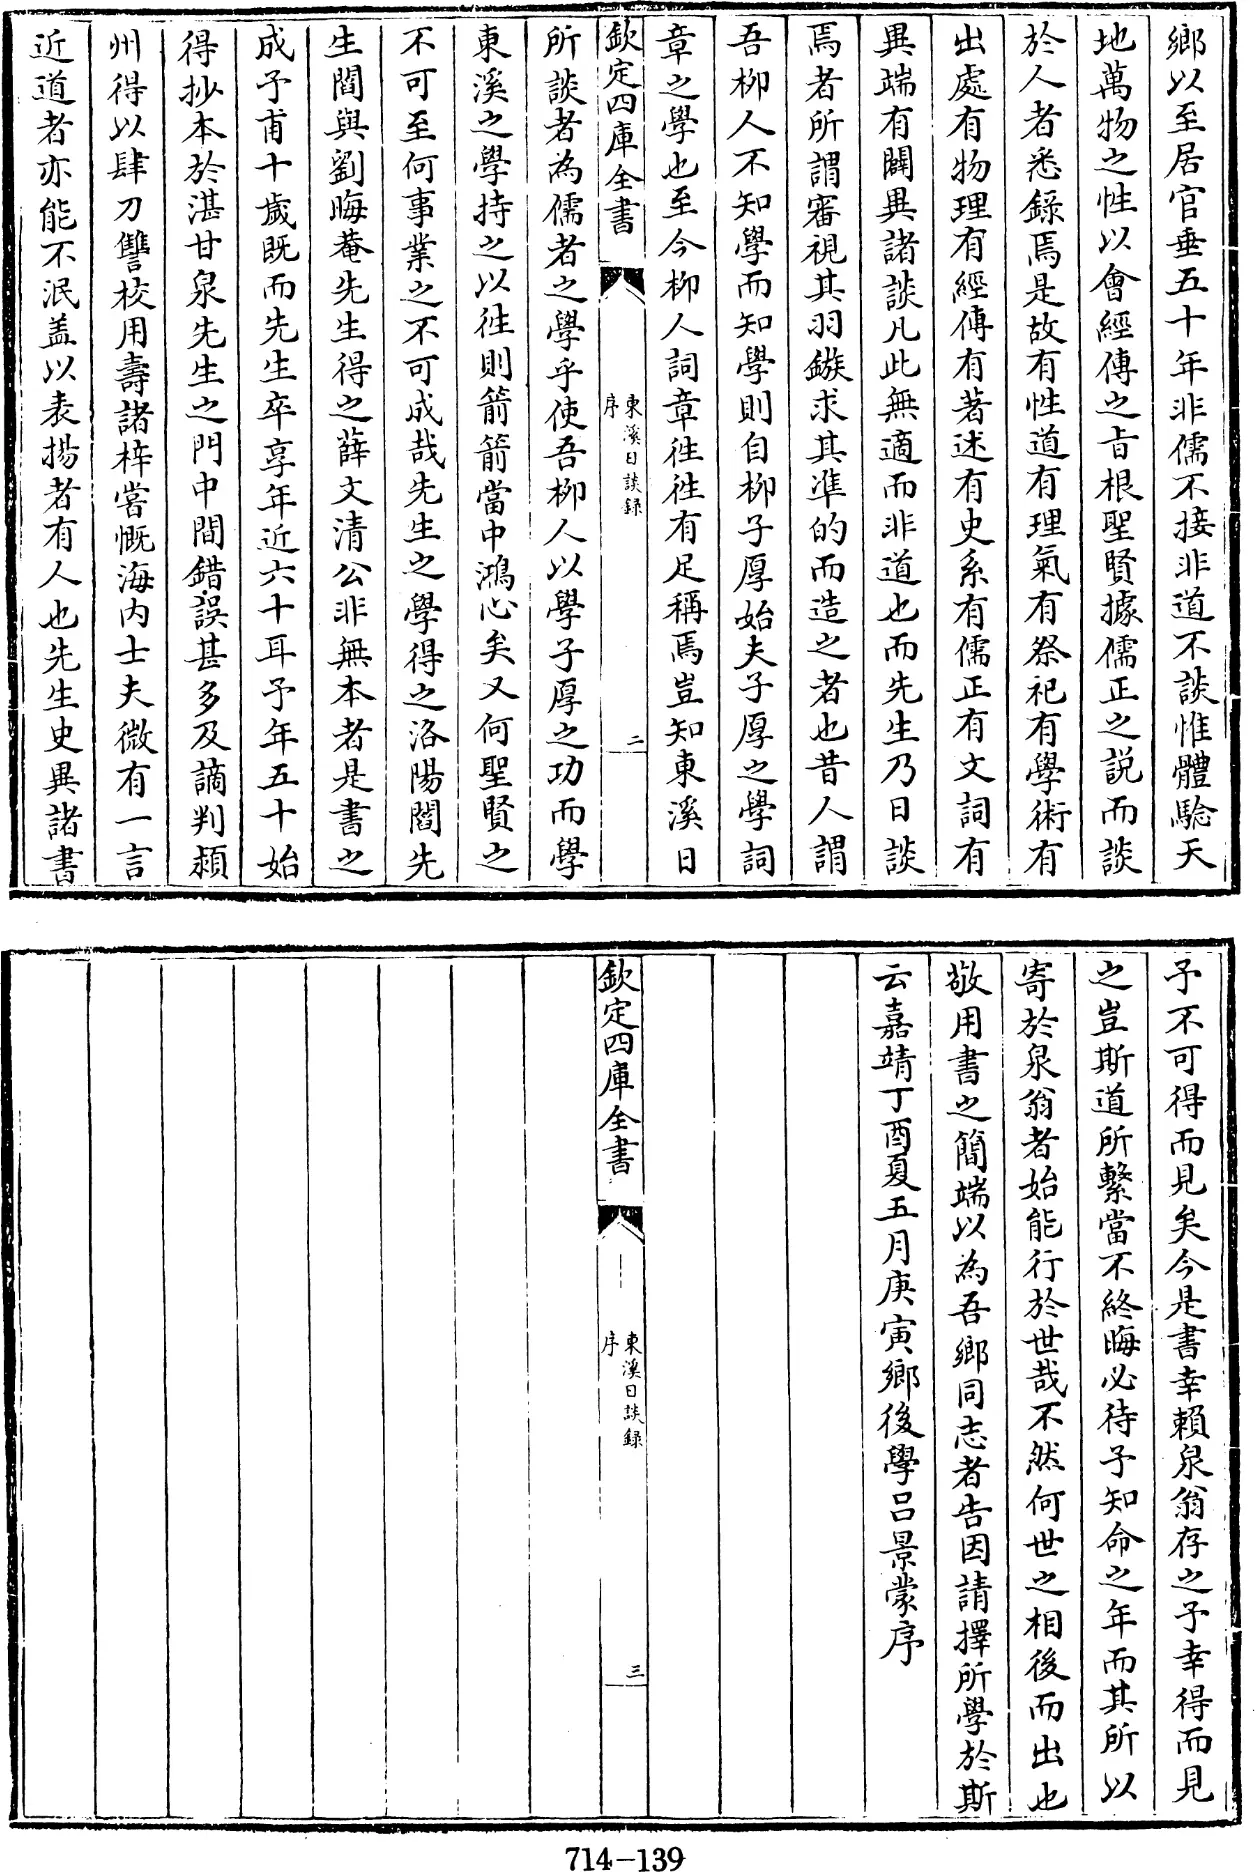 鄉以至居官垂五十年非儒不接非道不談惟體驗天
地萬物之性以會經傳之㫖根聖賢據儒正之説而談
於人者悉錄焉是故有性道有理氣有祭祀有學術有
出處有物理有經傳有著述有史系有儒正有文詞有
異端有闢異諸談凡此無適而非道也而先生乃日談
焉者所謂審視其羽鏃求其準的而造之者也昔人謂
吾柳人不知學而知學則自柳子厚始夫子厚之學詞
章之學也至今柳人詞章徃徃有足稱焉豈知東溪日
欽定四庫全書
東溪日談録
序
二
所談者為儒者之學乎使吾柳人以學子厚之功而學
東溪之學持之以徃則箭箭當中鴻心矣又何聖賢之
不可至何事業之不可成哉先生之學得之洛陽閻先
生閻與劉晦菴先生得之薛文清公非無本者是書之
成予甫十歲既而先生卒享年近六十耳予年五十始
得抄本於湛甘泉先生之門中間錯誤甚多及謫判潁
州得以肆力讐校用壽諸梓嘗慨海内士夫微有一言
近道者亦能不泯盖以表揚者有人也先生史異諸書
予不可得而見矣今是書幸賴泉翁存之予幸得而見
之豈斯道所繫當不終晦必待予知命之年而其所以
寄於泉翁者始能行於世哉不然何世之相後而出也
敬用書之簡端以為吾鄉同志者告因請擇所學於斯
云嘉靖丁酉夏五月庚寅鄉後學吕景蒙序
欽定四庫全書
東溪日談録
序
三
714-139